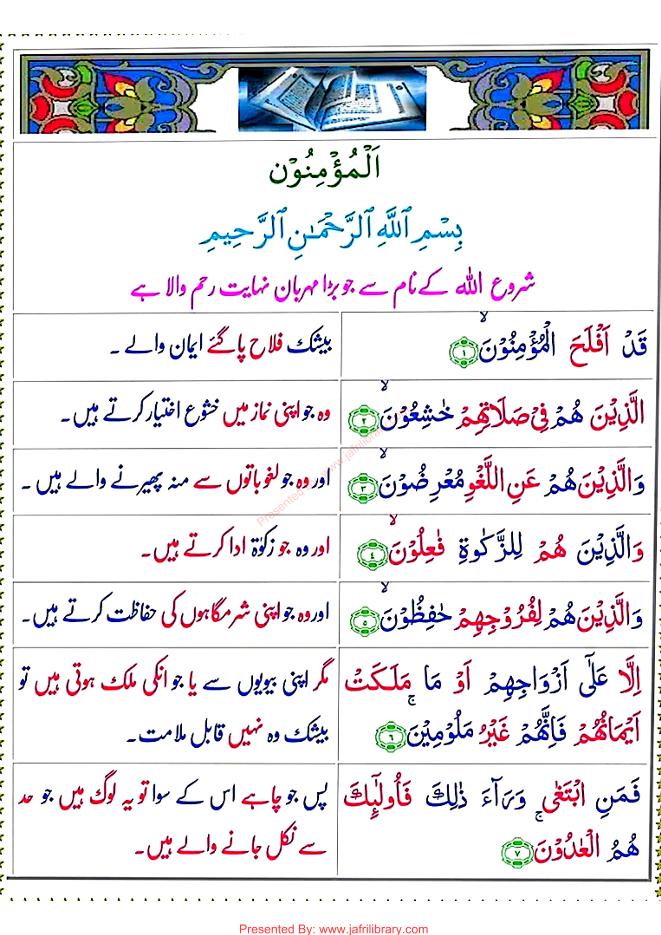 اَلْمُؤْمِنُوْن
بِسْمِ ٱللَّهِ ٱلرَّحْمَـٰنِ ٱلرَّحِيمِ
شروع اللہ کے نام سے جو بڑا مہربان نہایت رحم والا ہے
قَدْ اَفْلَحَ الْمُؤْمِنُوْنَ ۙ ﴿۱﴾
بیشک فلاح پا گئے ایمان والے ۔
الَّذِيْنَ هُمْ فِيْ صَلَاتِهِمْ خٰشِعُوْنَ ۙ ﴿۲﴾
وہ جو اپنی نماز میں خشوع اختیار کرتے ہیں۔
وَالَّذِيْنَ هُمْ عَنِ اللَّغْوِ مُعْرِضُوْنَ ۙ ﴿۳﴾
اور وہ جو لغو باتوں سے منہ پھیرنے والے ہیں ۔
وَالَّذِيْنَ هُمْ لِلزَّكٰوةِ فٰعِلُوْنَ ۙ ﴿۴﴾
اور وہ جو زکوٰۃ ادا کرتے ہیں۔
وَالَّذِيْنَ هُمْ لِفُرُوْجِهِمْ حٰفِظُوْنَ ۙ ﴿۵﴾
اور وہ جو اپنی شرمگاہوں کی حفاظت کرتے ہیں۔
اِلَّا عَلٰٓى اَزْوَاجِهِمْ اَوْ مَا مَلَكَتْ
اَيْمَانُهُمْ فَاِنَّهُمْ غَيْرُ مَلُوْمِيْنَ ۚ ﴿۶﴾
مگر اپنی بیویوں سے یا جو انکی ملک ہوتی ہیں تو
بیشک وہ نہیں قابل ملامت۔
فَمَنِ ابْتَغٰى وَرَآءَ ذٰلِكَ فَاُولٰٓئِكَ
هُمُ الْعٰدُوْنَ ۚ ﴿۷﴾
پس جو چاہے اس کے سوا تو یہ لوگ ہیں جو حد
سے نکل جانے والے ہیں۔
Presented By: www.jafrilibrary.com